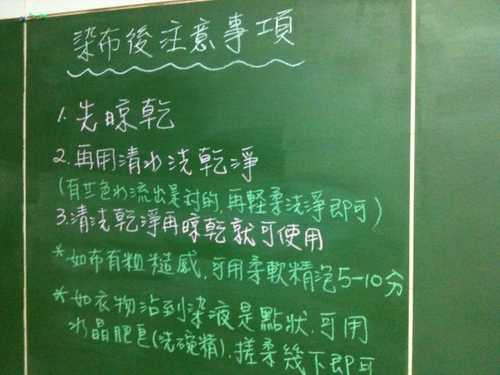 染布後注意事項
1.先晾乾
2.再用清水洗乾淨
(有些色水流出是對的,再輕柔洗淨即可)
3.清洗乾淨再晾乾就可使用
*如布有粗糙感,可用柔軟精泡5-10分
*如衣物沾到染液是點狀,可用
水晶肥皂(洗碗精),搓柔幾下即可